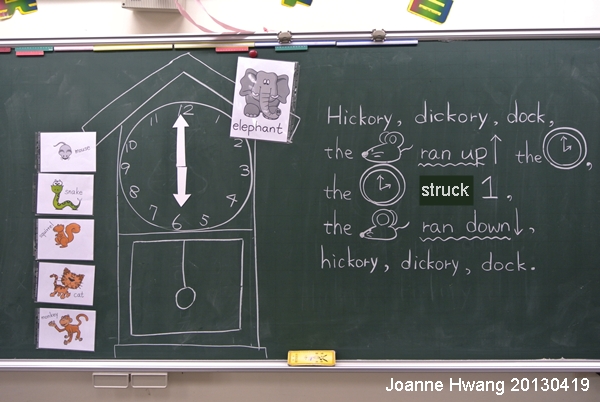 Hickory, dickory, dock,
the ran up the ,
the struck 1,
the ran down,
hickory, dickory, dock.
elephant
mouse
snake
squirrel
cat
monkey
12
11 1
10 2
9 3
8 4
7 5
6
Joanne Hwang 20130419